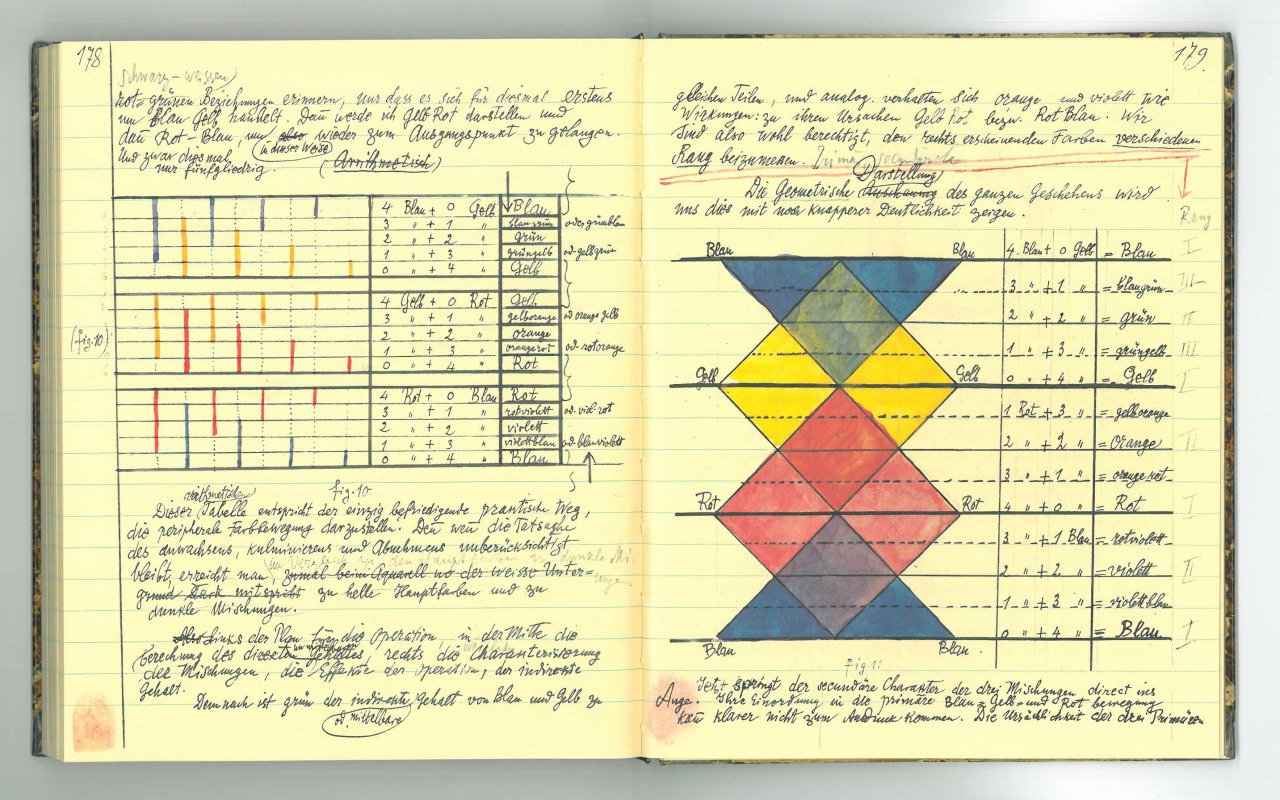 178
Schwarz-weissen)
rot-grünen Beziehungen erinnern, nur dass es sich für diesmal erstens
um Blau Gelb handelt. Dann werde ich Gelb Rot darstellen und
dann Rot-Blau, um also wieder zum Ausgangspunkt zu gelangen.
in dieser Weise
Und zwar diesmal (Arrithmetisch)
nur fünfgliedrig.
4 Blau + 0 Gelb Blau
3 " + 1 " blaugrün od. grünblau
2 " + 2 " grün
1 " + 3 " grüngelb od. gelbgrün
0 " + 4 " Gelb
4 Gelb + 0 Rot Gelb
3 " + 1 " gelborange od orange gelb
2 " + 2 " orange
(fig. 10)
1 " + 3 " orangerot od. rotorange
0 " + 4 " Rot
4 Rot + 0 Blau Rot
3 " + 1 " rotviolett od. viol. rot
2 " + 2 " violett
1 " + 3 " violettblau od. blauviolett
0 " + 4 " Blau
fig. 10
arithmetische
Dieser Tabelle entspricht der einzig befriedigende practische Weg,
die peripherale Farbbewegung darzustellen. Denn wenn die Tatsache
des Anwachsens, Kulminierens und Abnehmens unberücksichtigt
bleibt, erreicht man, zumal beim Aquarell wo der weisse Unter=
grund stark mitspricht zu helle Hauptfarben und zu
dunkle Mischungen.
Also Links der Plan für die Operation, in der Mitte die
berechnung des directen Gehaltes, rechts die Charakterisierung
der Mischungen, die Effekte der Operation, der indirekte
Gehalt.
Demnach ist grün der indirekte Gehalt von Blau und Gelb zu
od. mittelbare
179.
gleichen Teilen, und analog verhalten sich orange und violett wie
Wirkungen zu ihren Ursachen Gelb Rot bezw. Rot Blau. Wir
sind also wohl berechtigt, den rechts erscheinenden Farben verschiedenen
Rang beizumessen.
Darstellung
Die Geometrische Anschauung des ganzen Geschehens wird
uns dies mit noch knapperer Deutlichkeit zeigen.
Rang
Blau Blau 4 Blau + 0 Gelb = Blau I
3 " + 1 " = blaugrün III
2 " + 2 " = grün II
1 " + 3 " = grüngelb III
Gelb Gelb 0 " + 4 " = Gelb I
1 Rot + 3 " = gelborange
2 " + 2 " = Orange II
3 " + 1 " = orangerot
Rot Rot 4 " + 0 " = Rot I
3 " + 1 Blau = rotviolett
2 " + 2 " = violett II
1 " + 3 " = violettblau
Blau Blau 0 " + 4 " = Blau I
fig. 11
Jetzt springt der secundäre Charakter der drei Mischungen direct ins
Auge. Ihre Einordnung in die primäre Blau-Gelb- und Rot bewegung
kann klarer nicht zum Ausdruck kommen. Die Ursächlichkeit der drei Primären